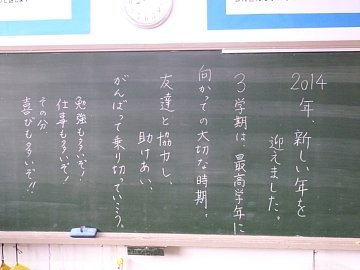 2014年、新しい年を
迎えました。
3学期は、最高学年に
向かっての大切な時期。
友達と協力し、
助けあい、
がんばって乗り切っていこう。
勉強も多いぞ!
仕事も多いぞ!
その分
喜びも多いぞ!!